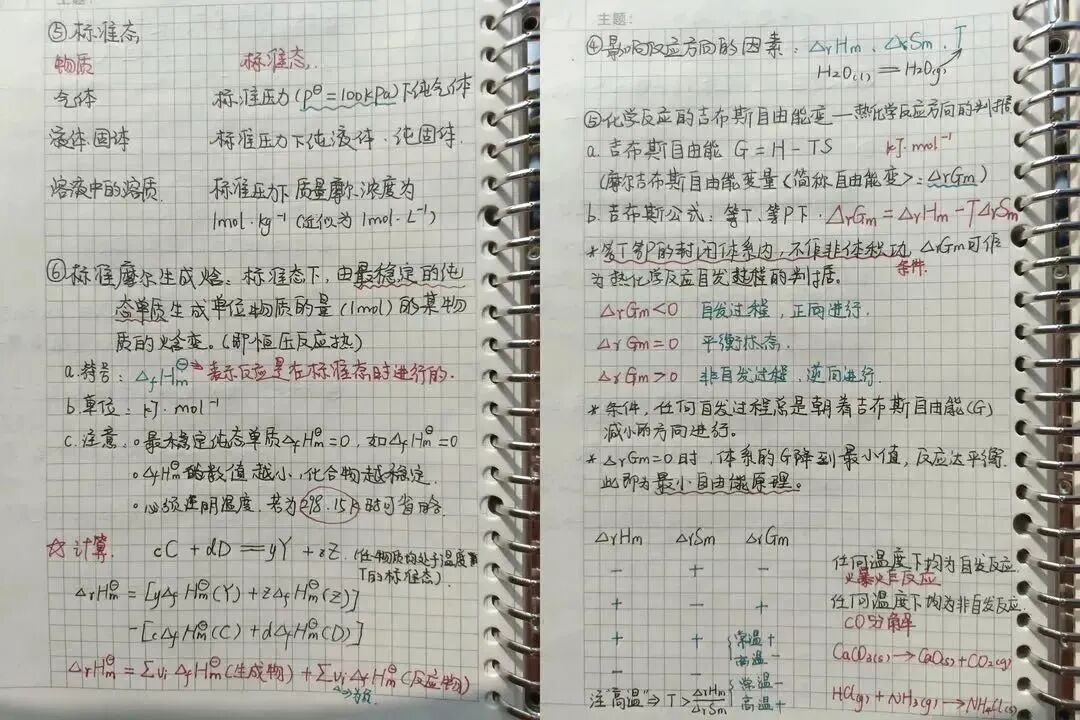 ⑤标准态
物质 标准态
气体 标准压力(p^⊖=100kPa)下纯气体
液体.固体 标准压力下纯液体.纯固体.
溶液中的溶质. 标准压力下质量摩尔浓度为
1mol·kg⁻¹(近似为1mol·L⁻¹)
⑥标准摩尔生成焓:标准态下,由最稳定的纯
态单质生成单位物质的量(1mol)的某物
质的焓变。(即恒压反应热)
a.符号:ΔfHm^⊖→表示反应是在标准态时进行的.
b.单位:kJ·mol⁻¹
c.注意.○最稳定纯态单质ΔfHm^⊖=0,如ΔfHm^⊖=0
○ΔfHm^⊖的数值越小,化合物越稳定.
○必须注明温度,若为298.15K时可省略.
☆计算. cC+dD=yY+zZ.(任一物质均处于温度
T的标准态)
ΔrHm^⊖=[yΔfHm^⊖(Y)+zΔfHm^⊖(Z)]
-[cΔfHm^⊖(C)+dΔfHm^⊖(D)]
ΔrHm^⊖=ΣνiΔfHm^⊖(生成物)+ΣνiΔfHm^⊖(反应物)
主题:
④影响反应方向的因素:ΔrHm.ΔrSm.T
H2O(l)=H2O(g)
⑤化学反应的吉布斯自由能变—热化学反应方向的判据
a.吉布斯自由能 G=H-TS kJ·mol⁻¹
(摩尔吉布斯自由能变量<简称自由能变>:ΔrGm)
b.吉布斯公式:等T、等P下.ΔrGm=ΔrHm-TΔrSm
*等T等P的封闭体系内,不作非体积功,ΔrGm可作
条件.
为热化学反应自发过程的判据。
ΔrGm<0 自发过程,正向进行.
ΔrGm=0 平衡状态.
ΔrGm>0 非自发过程,逆向进行.
*条件,任何自发过程总是朝着吉布斯自由能(G)
减小的方向进行。
*ΔrGm=0时.体系的G降到最小值,反应达平衡.
此即为最小自由能原理。
ΔrHm ΔrSm ΔrGm
- + - 任何温度下均为自发反应.
火暴火乍反应
+ - + 任何温度下均为非自发反应.
CO分解
+ + {常温+ 高温- CaCO3(s)→CaO(s)+CO2(g)
- - {常温- 高温+ HCl(g)+NH3(g)→NH4Cl(s)
注"高温"⇒T>ΔrHm/ΔrSm